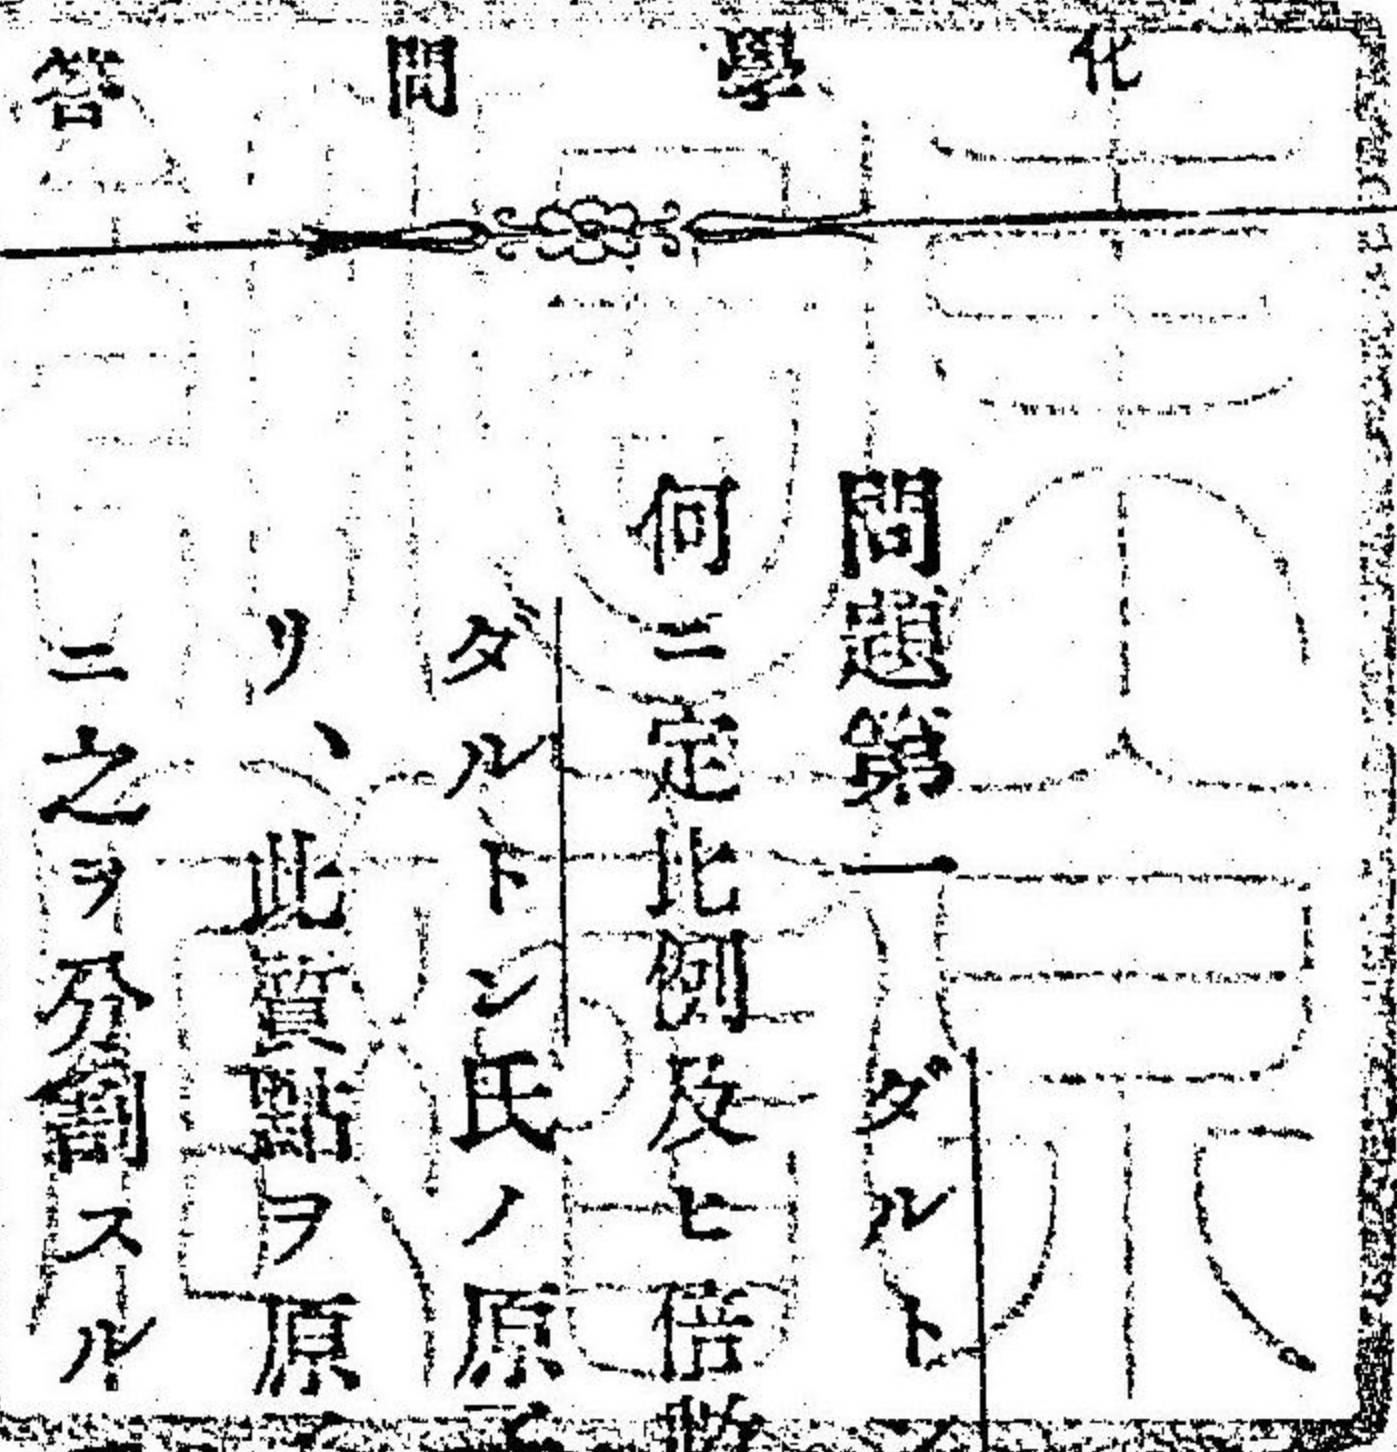 化學問答
問題第一 ダルト
何ニ定比例及ヒ倍
ダルトン氏ノ原
リ、此質點ヲ原
ニ之ヲ分割スル